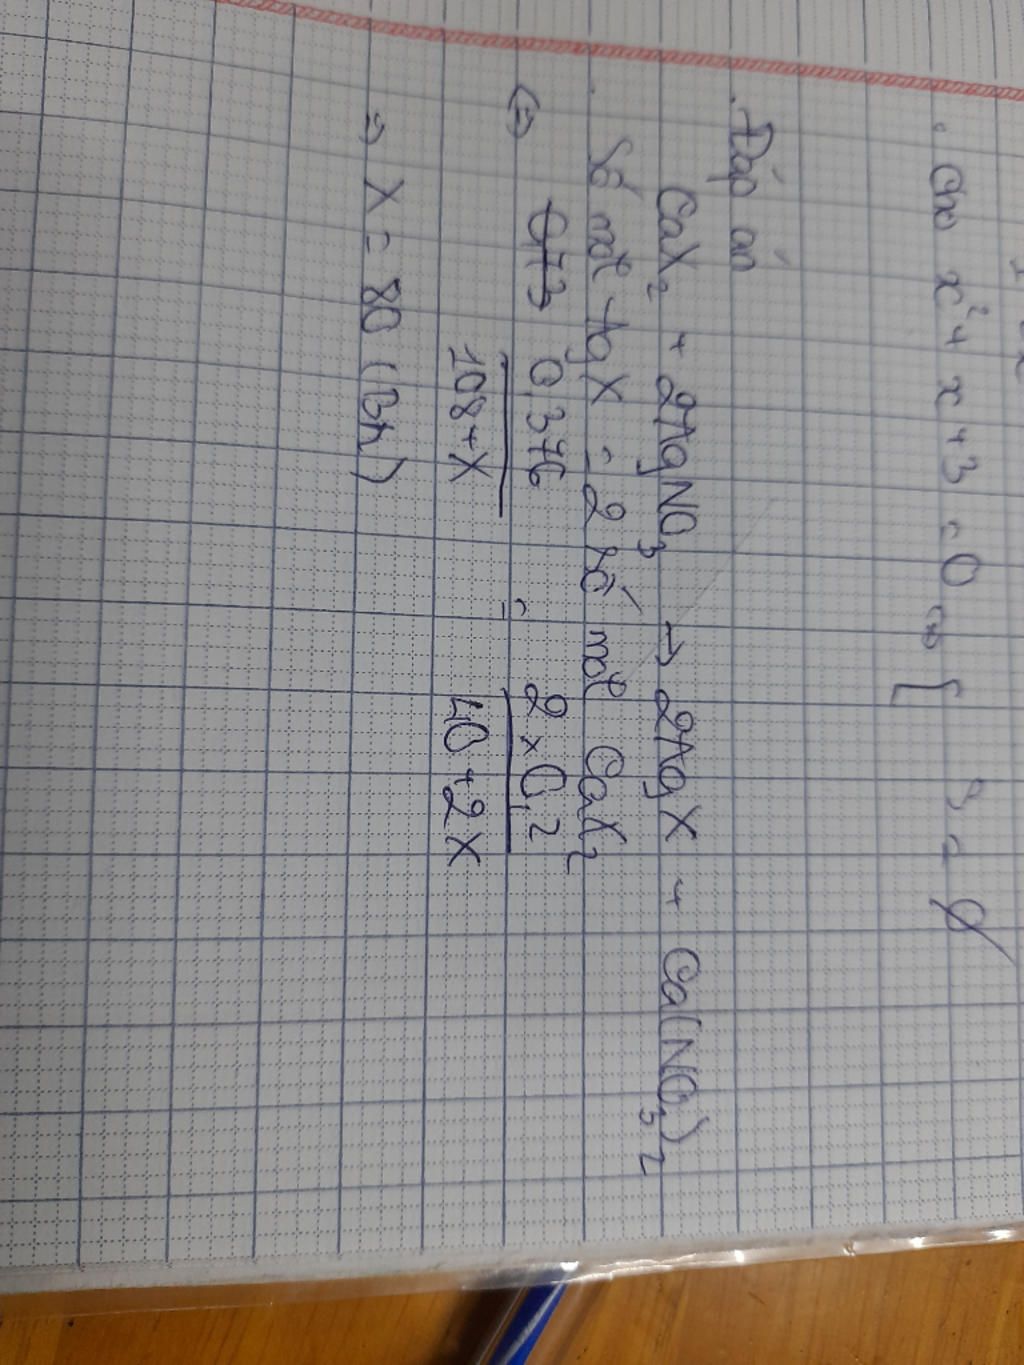 . Cho x² + x + 3 = 0 <=> [
. Đáp án
CaX₂ + 2AgNO₃ → 2AgX + Ca(NO₃)₂
. Số mol AgX = 2 số mol CaX₂
<=> 0,73 0,376/108+X = 2 x 0,2/40+2X
=> X = 80 (Br)